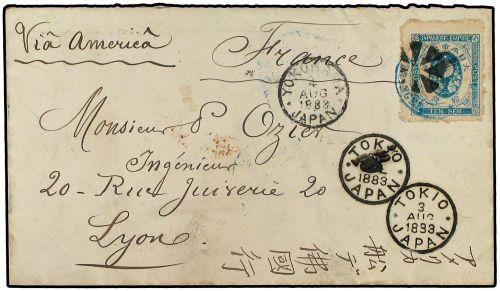 Viâ America
France
JAPANESE EMPIRE
TEN SEN
YOKOHAMA
4
AUG
1883
JAPAN
Monsieur P Ozier
Ingénieur
20 - Rue Juiverie 20
Lyon
TOKIO
1883
JAPAN
TOKIO
3
AUG
1883
JAPAN
アメリカ
船デ
佛國行